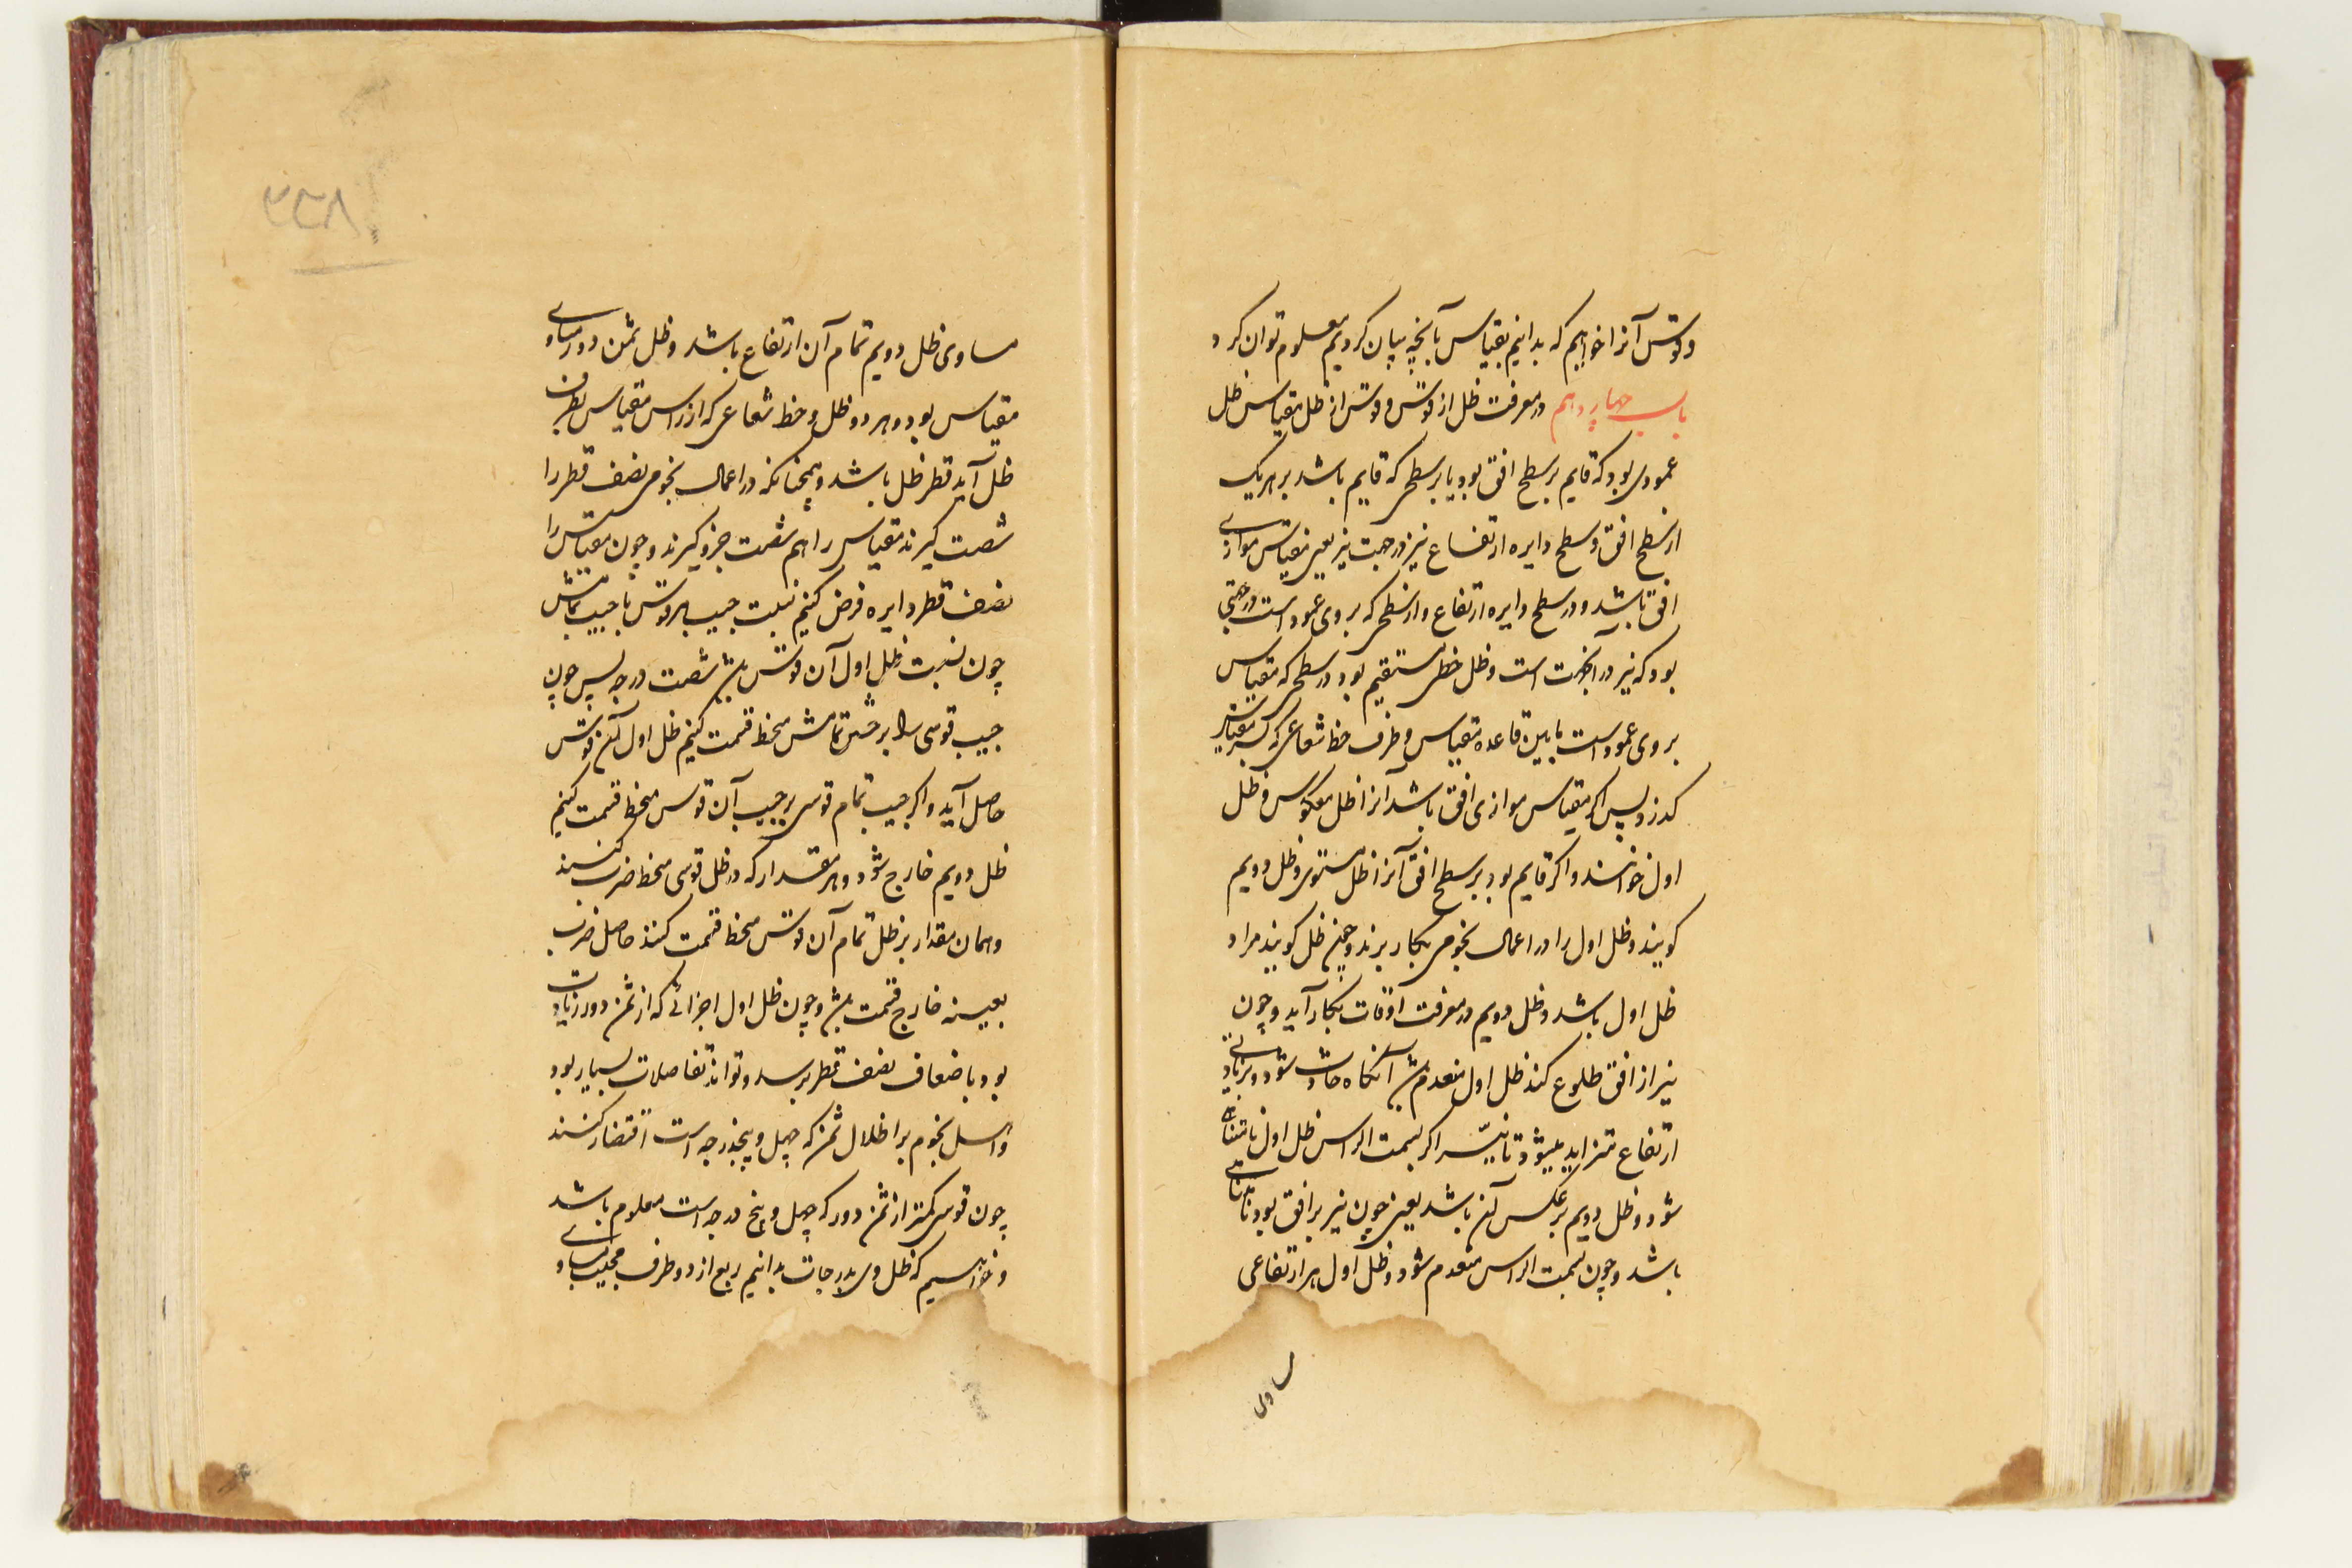 وقوس آنرا خواهیم که بدانیم بقیاس بآنچه بیان کردیم معلوم توان کرد
باب چهاردهم در معرفت ظل از قوس و قوس از ظل مقیاس ظل
عمودی بود که قایم بر سطح افق بود یا بر سطحی که قایم باشد بر هر یک
از سطح افق و سطح دایره ارتفاع نیز در جهت نیر یعنی مقیاس موازی
افق باشد و در سطح دایره ارتفاع و از سطحی که بر وی عمود است در جهتی
بود که نیر در آنجهت است و ظل خطی مستقیم بود در سطحی که مقیاس
بر وی عمود است مابین قاعده مقیاس و طرف خط شعاعی که بسر مقیاس
گذرد پس اگر مقیاس موازی افق باشد آنرا ظل معکوس و ظل
اول خوانند و اگر قایم بود بر سطح افق آنرا ظل مستوی و ظل دویم
گویند و ظل اول را در اعمال نجومی بکار برند و چون ظل گویند مراد
ظل اول باشد و ظل دویم در معرفت اوقات بکار آید و چون
نیر از افق طلوع کند ظل اول منعدم باشد آنگاه حادث شود و بزیادتی
ارتفاع متزاید میشود تا نیر اگر بسمت الراس ظل اول نامتناهی
شود و ظل دویم بر عکس آن باشد یعنی چون نیر بر افق بود نامتناهی
باشد و چون بسمت الراس منعدم شود و ظل اول هر ارتفاعی
ساوی
۲۶۸
مساوی ظل دویم تمام آن ارتفاع باشد و ظل ثمن دور مساوی
مقیاس بود و هر دو ظل و خط شعاعی که از راس مقیاس بطرف
ظل آید قطر ظل باشد و همچنانکه در اعمال نجومی نصف قطر را
شصت گیرند مقیاس را هم شصت جزو گیرند و چون مقیاس را
نصف قطر دایره فرض کنیم نسبت جیب هر قوس با جیب تمامش
چون نسبت ظل اول آن قوس باشد بشصت درجه پس چون
جیب قوسی را بر جیب تمامش منحط قسمت کنیم ظل اول آن قوس
حاصل آید و اگر جیب تمام قوسی بر جیب آن قوس منحط قسمت کنیم
ظل دویم خارج شود و هر مقدار که در ظل قوسی منحط ضرب کنند
و همان مقدار بر ظل تمام آن قوس منحط قسمت کنند حاصل ضرب
بعینه خارج قسمت باشد و چون ظل اول اجزائی که از ثمن دور زیادت
بود باضعاف نصف قطر برسد و تواند تفاضلات بسیار بود
و اهل نجوم بر اظلال ثمن که چهل و پنجدرجه است اقتصار کنند
چون قوسی کمتر از ثمن دور که چهل و پنج درجه است معلوم باشد
و خواهیم که ظل وی بدرجات بدانیم ربع از دو طرف مجیب مساوی